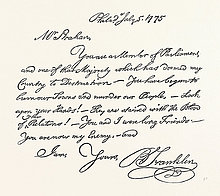 Philad.ª July 5. 1775
Mr Strahan,
You are a Member of Parliament,
and one of that Majority which has doomed my
Country to Destruction. — You have begun to
burn our Towns and murder our People. — Look
upon your Hands! — They are stained with the Blood
of your Relations! — You and I were long Friends: —
You are now my Enemy, — and
I am,
Yours,
B Franklin